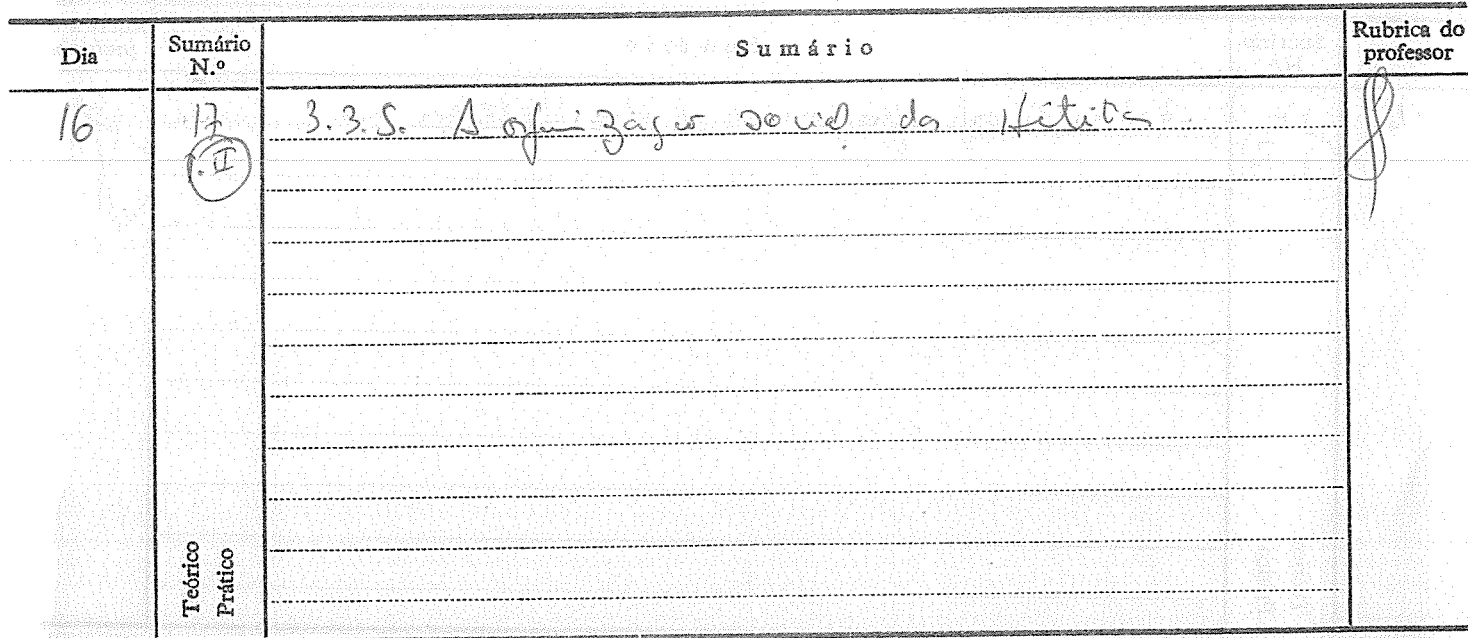 Dia
Sumário N.º
Sumário
Rubrica do professor
16
17
3.3.5. A organização social dos Hititas
T. II
Teórico
Prático